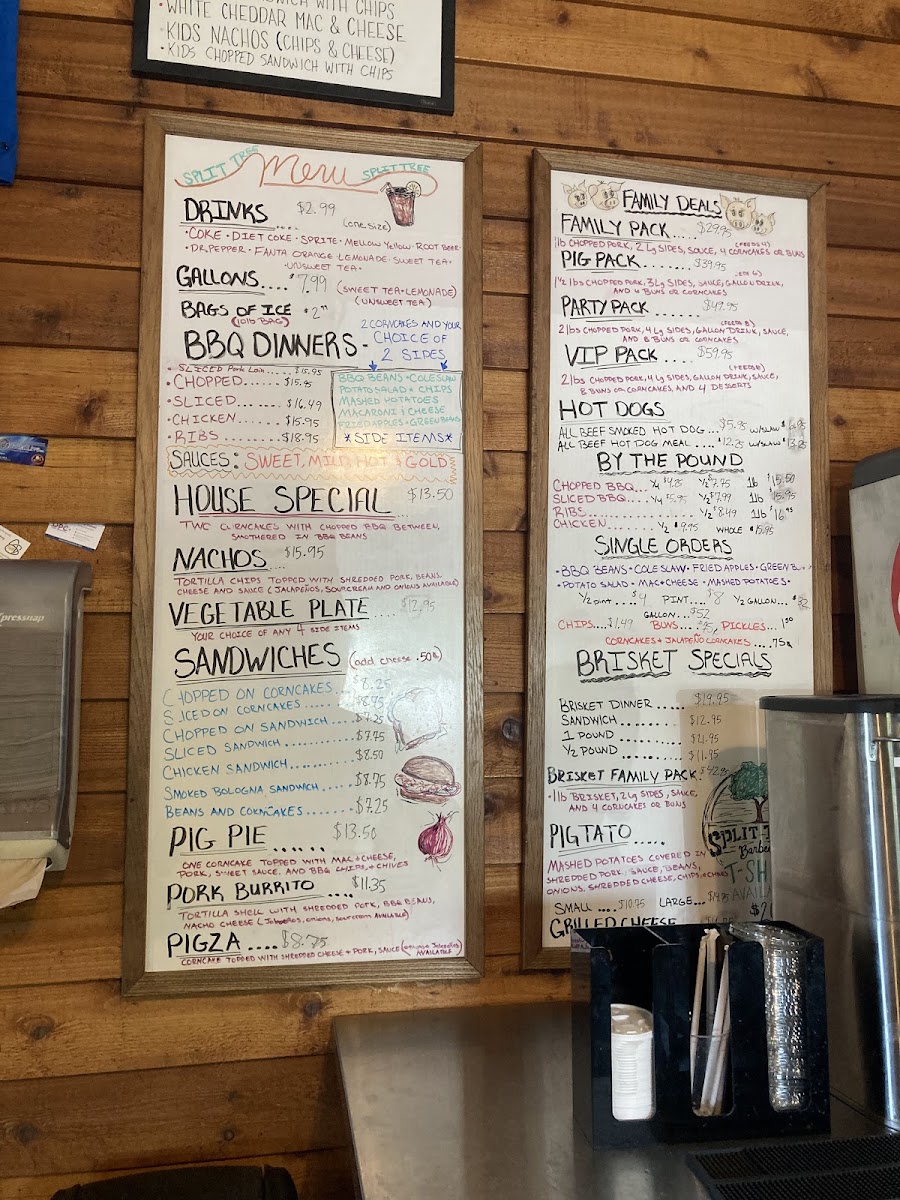 SANDWICH WITH CHIPS
• WHITE CHEDDAR MAC & CHEESE
• KIDS NACHOS (CHIPS & CHEESE)
• KIDS CHOPPED SANDWICH WITH CHIPS
SPLIT TREE Menu SPLIT TREE
DRINKS $2.99
(one size)
• COKE • DIET COKE • SPRITE • MELLOW YELLOW • ROOT BEER
• DR. PEPPER • FANTA ORANGE • LEMONADE • SWEET TEA •
• UNSWEET TEA •
GALLONS.... $7.99 (SWEET TEA • LEMONADE)
(UNSWEET TEA)
BAGS OF ICE $2
(10lb BAG)
BBQ DINNERS - 2 CORNCAKES AND YOUR
CHOICE OF
2 SIDES
• SLICED Pork Loin... $15.95
• CHOPPED...... $15.95
• SLICED....... $16.49
• CHICKEN....... $15.95
• RIBS......... $18.95
BBQ BEANS • COLESLAW
POTATO SALAD • CHIPS
MASHED POTATOES
MACARONI & CHEESE
FRIED APPLES • GREEN BEANS
*SIDE ITEMS*
SAUCES: SWEET, MILD, HOT & GOLD
HOUSE SPECIAL $13.50
TWO CORNCAKES WITH CHOPPED BBQ BETWEEN,
SMOTHERED IN BBQ BEANS
NACHOS $15.95
TORTILLA CHIPS TOPPED WITH SHREDDED PORK, BEANS,
CHEESE AND SAUCE (JALAPEÑOS, SOUR CREAM AND ONIONS AVAILABLE)
VEGETABLE PLATE $12.95
YOUR CHOICE OF ANY 4 SIDE ITEMS
SANDWICHES (add cheese .50¢)
CHOPPED ON CORNCAKES... $8.25
SLICED ON CORNCAKES.... $8.75
CHOPPED ON SANDWICH.... $7.25
SLICED SANDWICH........... $7.75
CHICKEN SANDWICH.......... $8.50
SMOKED BOLOGNA SANDWICH.... $8.75
BEANS AND CORNCAKES...... $7.25
PIG PIE ...... $13.50
ONE CORNCAKE TOPPED WITH MAC & CHEESE,
PORK, SWEET SAUCE, AND BBQ CHIPS, & CHIVES
PORK BURRITO .... $11.35
TORTILLA SHELL WITH SHREDDED PORK, BBQ BEANS,
NACHO CHEESE (Jalapeños, onions, sourcream AVAILABLE)
PIGZA .... $8.75
CORNCAKE TOPPED WITH SHREDDED CHEESE & PORK, SAUCE (onions & Jalapeños AVAILABLE)
FAMILY DEALS
FAMILY PACK.... $29.95
(FEEDS 4)
1lb CHOPPED PORK, 2 Lg SIDES, SAUCE, 4 CORNCAKES OR BUNS
PIG PACK....... $39.95
1 1/2 lbs CHOPPED PORK, 3 Lg SIDES, SAUCE, GALLON DRINK,
AND 6 BUNS OR CORNCAKES
PARTY PACK ..... $49.95
(FEEDS 8)
2 lbs CHOPPED PORK, 4 Lg SIDES, GALLON DRINK, SAUCE,
AND 8 BUNS OR CORNCAKES
VIP PACK .... $59.95
(FEEDS 8)
2 lbs CHOPPED PORK, 4 Lg SIDES, GALLON DRINK, SAUCE,
8 BUNS OR CORNCAKES, AND 4 DESSERTS
HOT DOGS
ALL BEEF SMOKED HOT DOG... $5.95 W/SLAW $6.95
ALL BEEF HOT DOG MEAL.... $12.25 W/SLAW $13.25
BY THE POUND
CHOPPED BBQ... 1/4 $4.25 1/2 $7.75 1lb $15.50
SLICED BBQ.... 1/4 1/2 $7.99 1lb $15.95
RIBS................ 1/2 $8.49 1lb $16.95
CHICKEN.......... 1/2 $9.95 WHOLE $15.95
SINGLE ORDERS
• BBQ BEANS • COLESLAW • FRIED APPLES • GREEN
• POTATO SALAD • MAC & CHEESE • MASHED POTATOES •
1/2 PINT .... $4 PINT.... $8 1/2 GALLON... $32
GALLON .... $52
CHIPS....$1.49 BUNS... PICKLES....
CORNCAKES & JALAPEÑO CORNCAKES .... .75¢
BRISKET SPECIALS
BRISKET DINNER ..... $19.95
SANDWICH .......... $12.95
1 POUND ..........
1/2 POUND .......... $11.95
BRISKET FAMILY PACK. $42.95
• 1lb BRISKET, 2 Lg SIDES, SAUCE,
AND 4 CORNCAKES OR BUNS
PIGTATO .....
MASHED POTATOES COVERED IN
SHREDDED PORK, SAUCE, BEANS,
ONIONS, SHREDDED CHEESE, CHIPS, & CHIVES
SMALL .... $10.75 LARGE... $14.95
GRILLED CHEESE
SPLIT-T
Barbe
T-SH
AVAILA
xpressnap